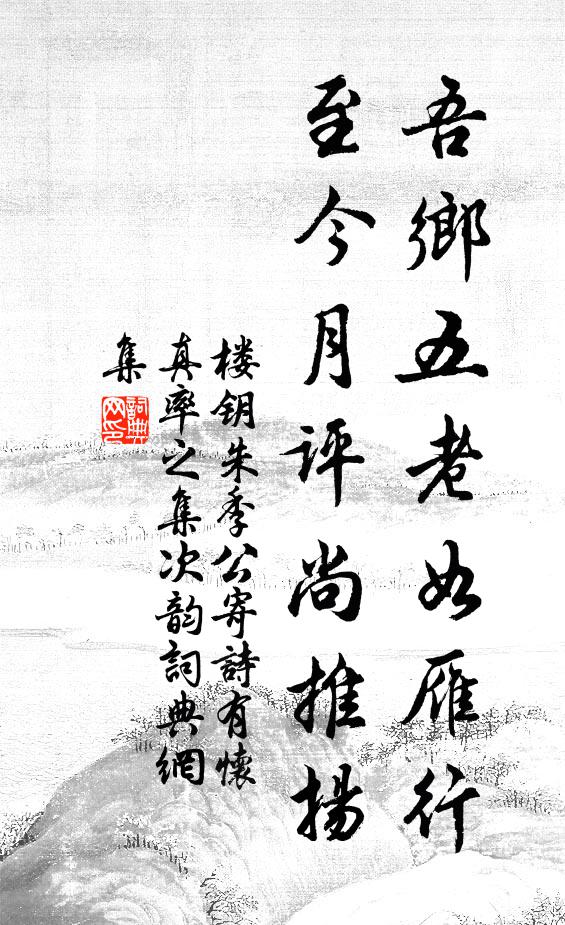 吾鄉五老如雁行
至今月評尚推揚
楼钥朱季公寄詩有懷
真率之集次韵詞典網
集
詞典網印